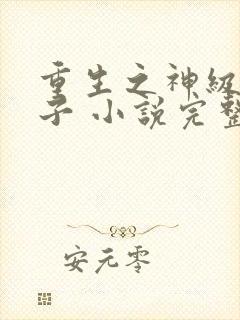 重生之神级
子 小说完整
安元零